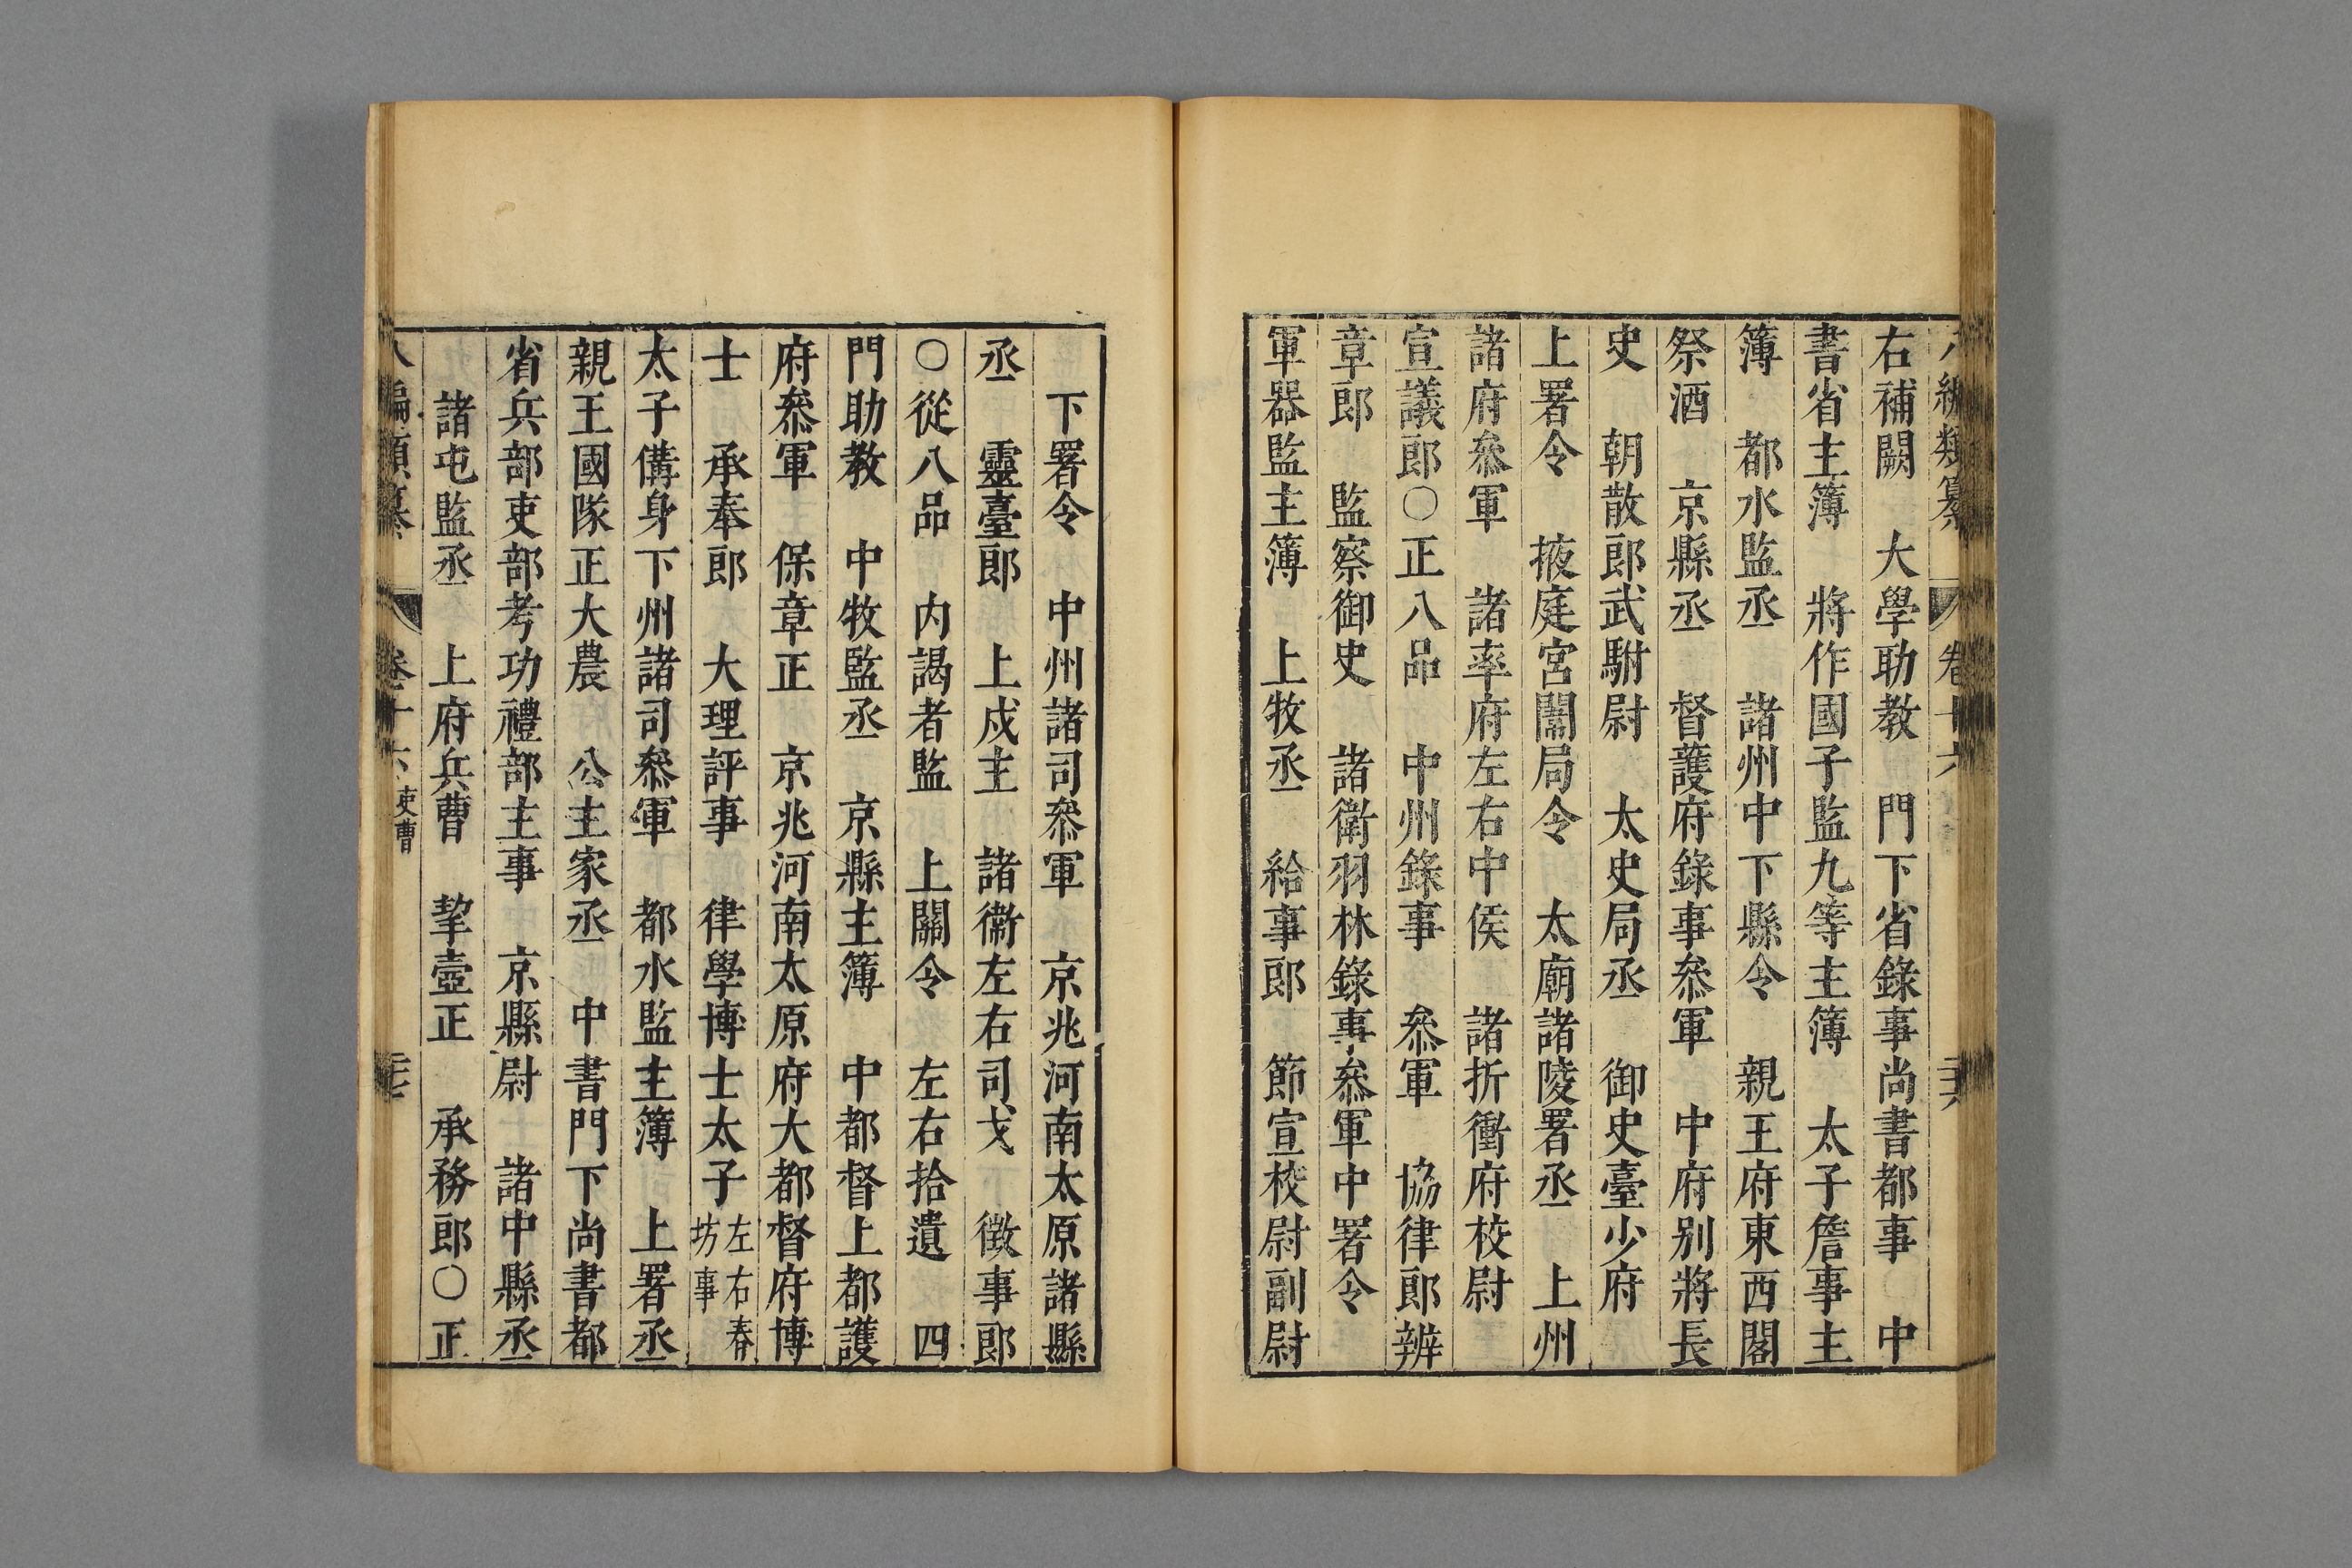 八編類纂 卷十六 三六
右補闕　大學助教　門下省錄事尚書都事　中
書省主簿　將作國子監九等主簿　太子詹事主
簿　都水監丞　諸州中下縣令　親王府東西閣
祭酒　京縣丞　督護府錄事叅軍　中府別將長
史　朝散郎武駙尉　太史局丞　御史臺少府
上署令　掖庭宮闈局令　太廟諸陵署丞　上州
諸府叅軍　諸率府左右中侯　諸折衝府校尉
宣議郎〇正八品　中州錄事　叅軍　協律郎辨
章郎　監察御史　諸衛羽林錄事叅軍中署令
軍器監主簿　上牧丞　給事郎　節宣校尉副尉
下署令　中州諸司叅軍　京兆河南太原諸縣
丞　靈臺郎　上戍主　諸衞左右司戈　徵事郎
〇從八品　内謁者監　上關令　左右拾遺　四
門助教　中牧監丞　京縣主簿　中都督上都護
府叅軍　保章正　京兆河南太原府大都督府博
士　承奉郎　大理評事　律學博士太子左右春坊事
太子備身下州諸司叅軍　都水監主簿　上署丞
親王國隊正大農　公主家丞　中書門下尚書都
省兵部吏部考功禮部主事　京縣尉　諸中縣丞
諸屯監丞　上府兵曹　挈壺正　承務郎〇正
編類纂 卷十六 吏曹